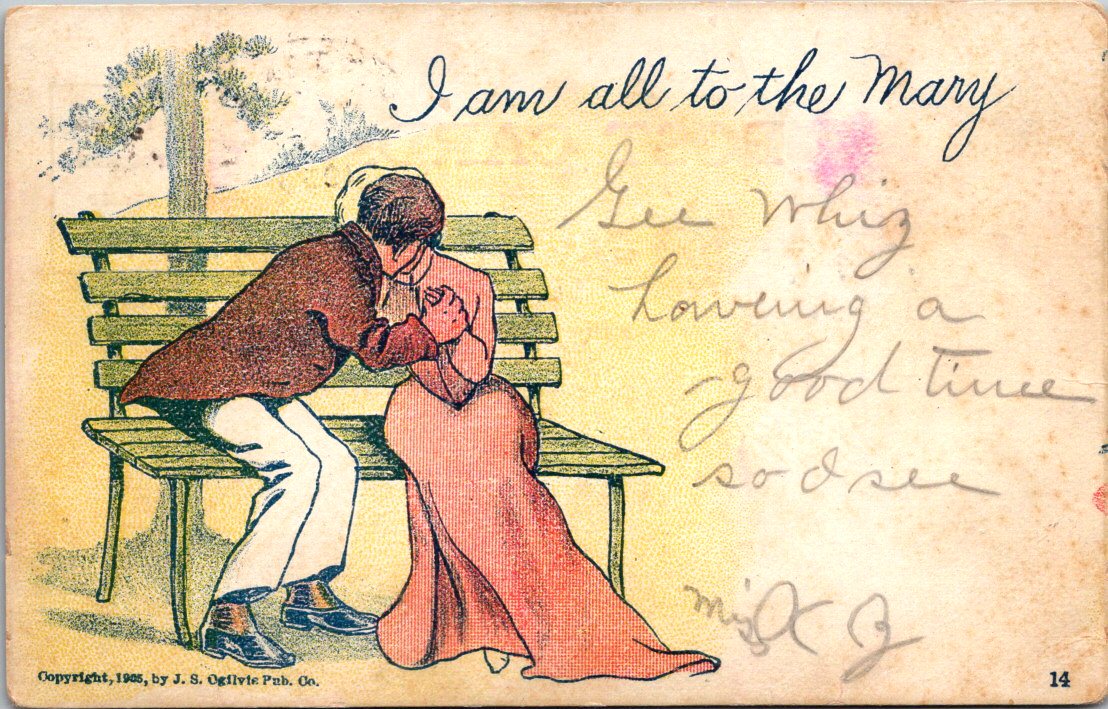 I am all to the Mary
Gee Whiz
haveing a
good time
so I see
Miss X Z
Copyright, 1905, by J. S. Ogilvie Pub. Co.
14